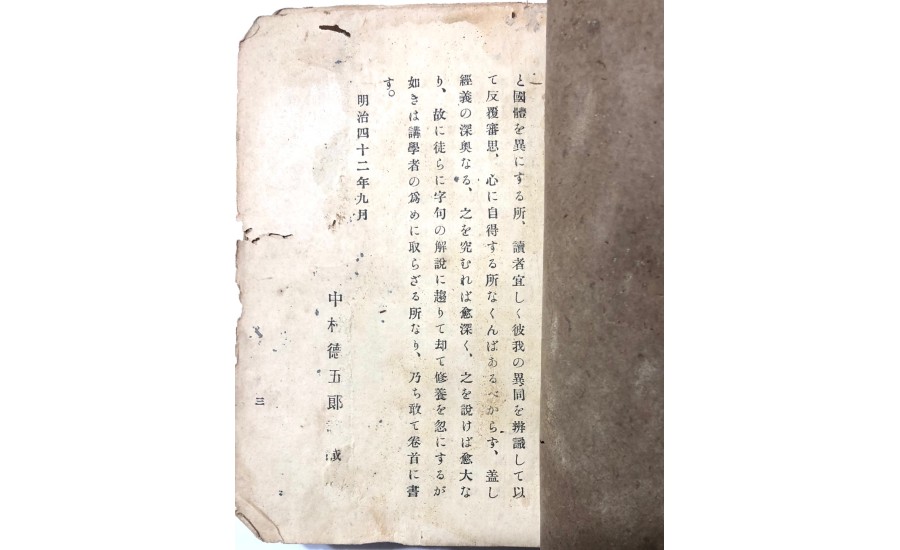 と國體を異にする所、讀者宜しく彼我の異同を辨識して以
て反覆審思、心に自得する所なくんばあるべからず、蓋し
經義の深奧なる、之を究むれば愈深く、之を說けば愈大な
り、故に徒らに字句の解說に趨りて却て修養を忽にするが
如きは講學者の爲めに取らざる所なり、乃ち敢て卷首に書
す。
明治四十二年九月
中村德五郞 識
三